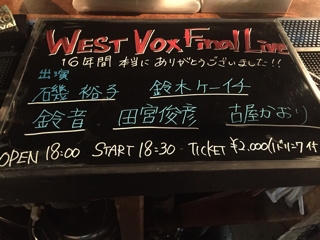 WEST VOX Final Live
16年間 本当に ありがとうございました!!
出演
石磯 裕子 鈴木ケーイチ
鈴音 田宮俊彦 古屋かおり
OPEN 18:00 START 18:30 TICKET ¥2.000(1ドリンク付